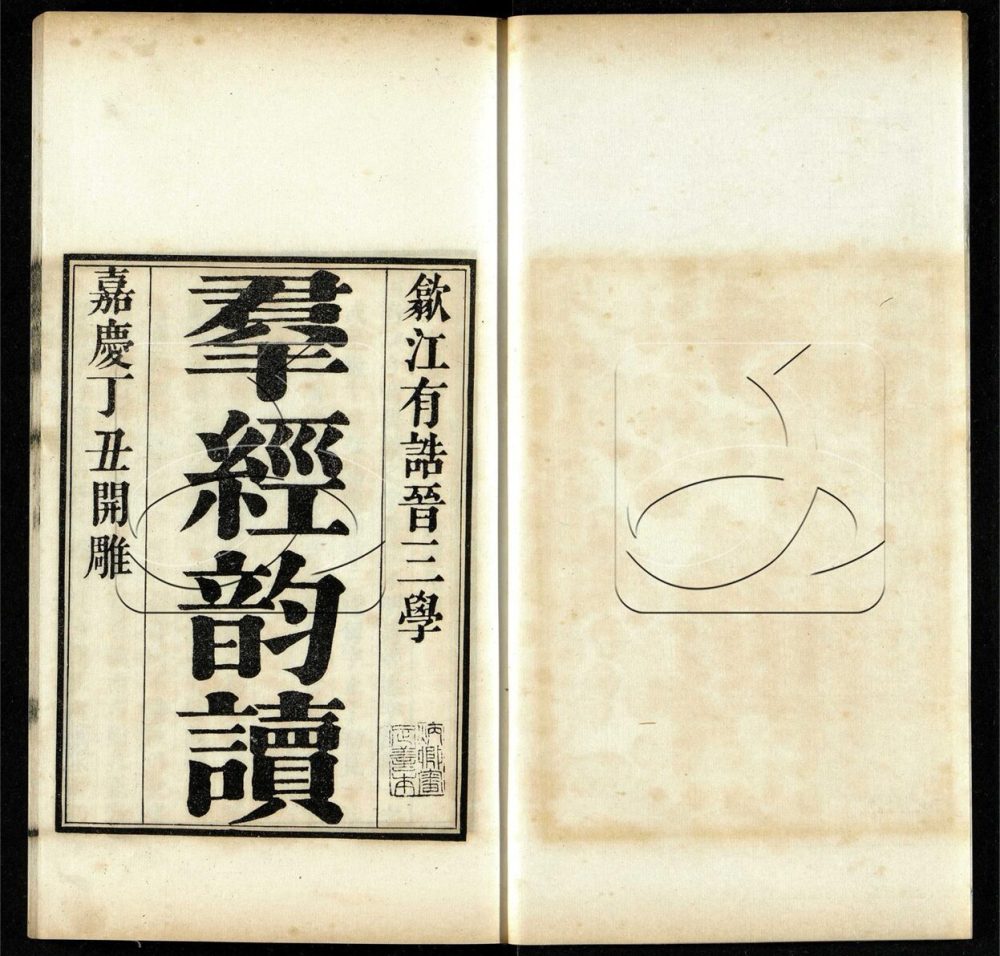 歙江有誥晉三學
羣經韵讀
嘉慶丁丑開雕